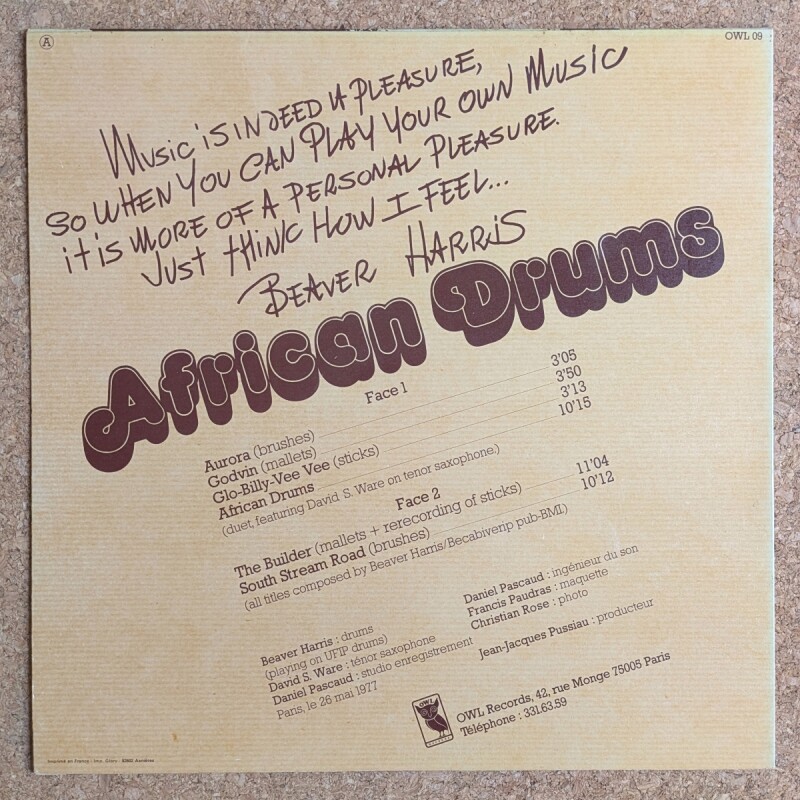 A
OWL 09
Music is indeed a pleasure,
so when you can play your own music
it is more of a personal pleasure.
Just think how I feel...
Beaver Harris
African Drums
Face 1
Aurora (brushes) 3'05
Godvin (mallets) 3'50
Glo-Billy-Vee Vee (sticks) 3'13
African Drums 10'15
(duet, featuring David S. Ware on tenor saxophone.)
Face 2
The Builder (mallets + rerecording of sticks) 11'04
South Stream Road (brushes) 10'12
(all titles composed by Beaver Harris/Becabivenp pub-BMI.)
Beaver Harris : drums
(playing on UFIP drums)
David S. Ware : ténor saxophone
Daniel Pascaud : studio enregistrement
Paris, le 26 mai 1977
Daniel Pascaud : ingénieur du son
Francis Paudras : maquette
Christian Rose : photo
Jean-Jacques Pussiau : producteur
OWL
OWL Records, 42, rue Monge 75005 Paris
Téléphone : 331.63.59